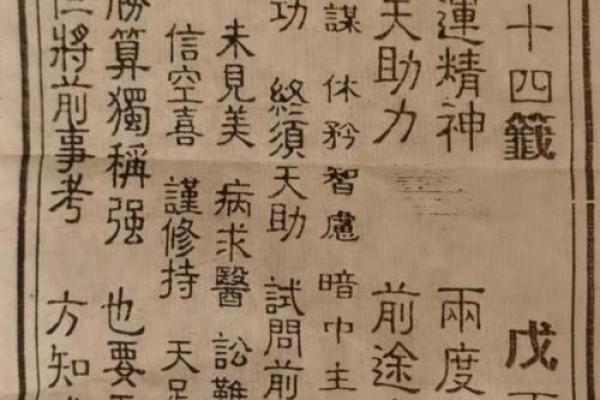 十四籤 戊
運精神 兩度
天助力 前途
謀 休矜智慮 暗中主
功 終須天助 試問前
未見美 病求醫 訟難
信空喜 謹修持 天
勝算獨稱强 也要
將前事考 方知